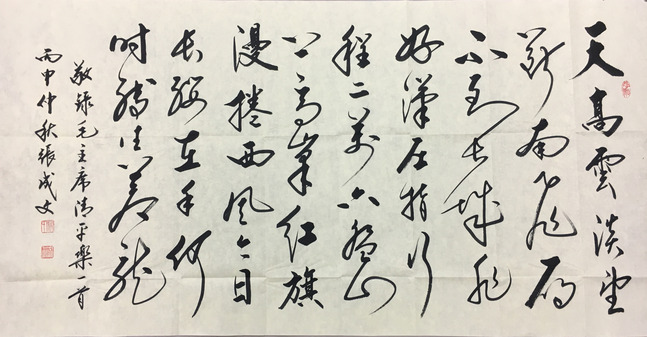 天高雲淡望
断南飛雁
不到長城非
好漢屈指行
程二萬六盤山
上高峯紅旗
漫捲西风今日
長纓在手何
时縛住蒼龍
敬録毛主席清平樂一首
丙申仲秋張成文